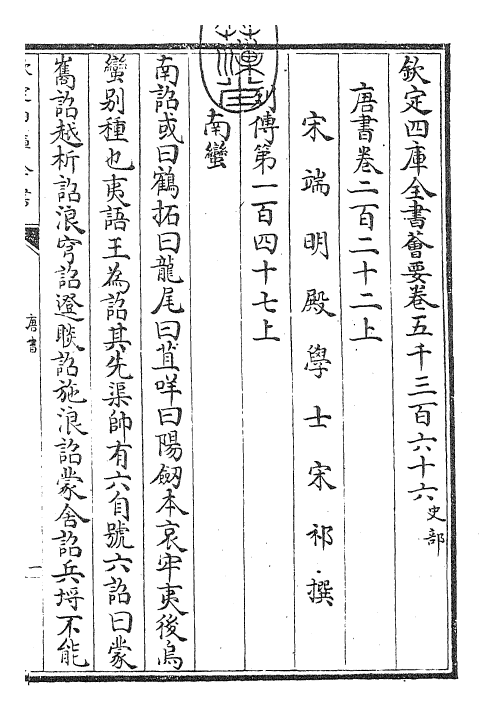 欽定四庫全書薈要卷五千三百六十六史部
唐書卷二百二十二上
宋端明殿學士宋祁撰
列傳第一百四十七上
南蠻
南詔或曰鶴拓曰龍尾曰苴咩曰陽劒本哀牢夷後烏
蠻别種也夷語王為詔其先渠帥有六自號六詔曰蒙
嶲詔越析詔浪穹詔邆睒詔施浪詔蒙舍詔兵埓不能
唐書
一